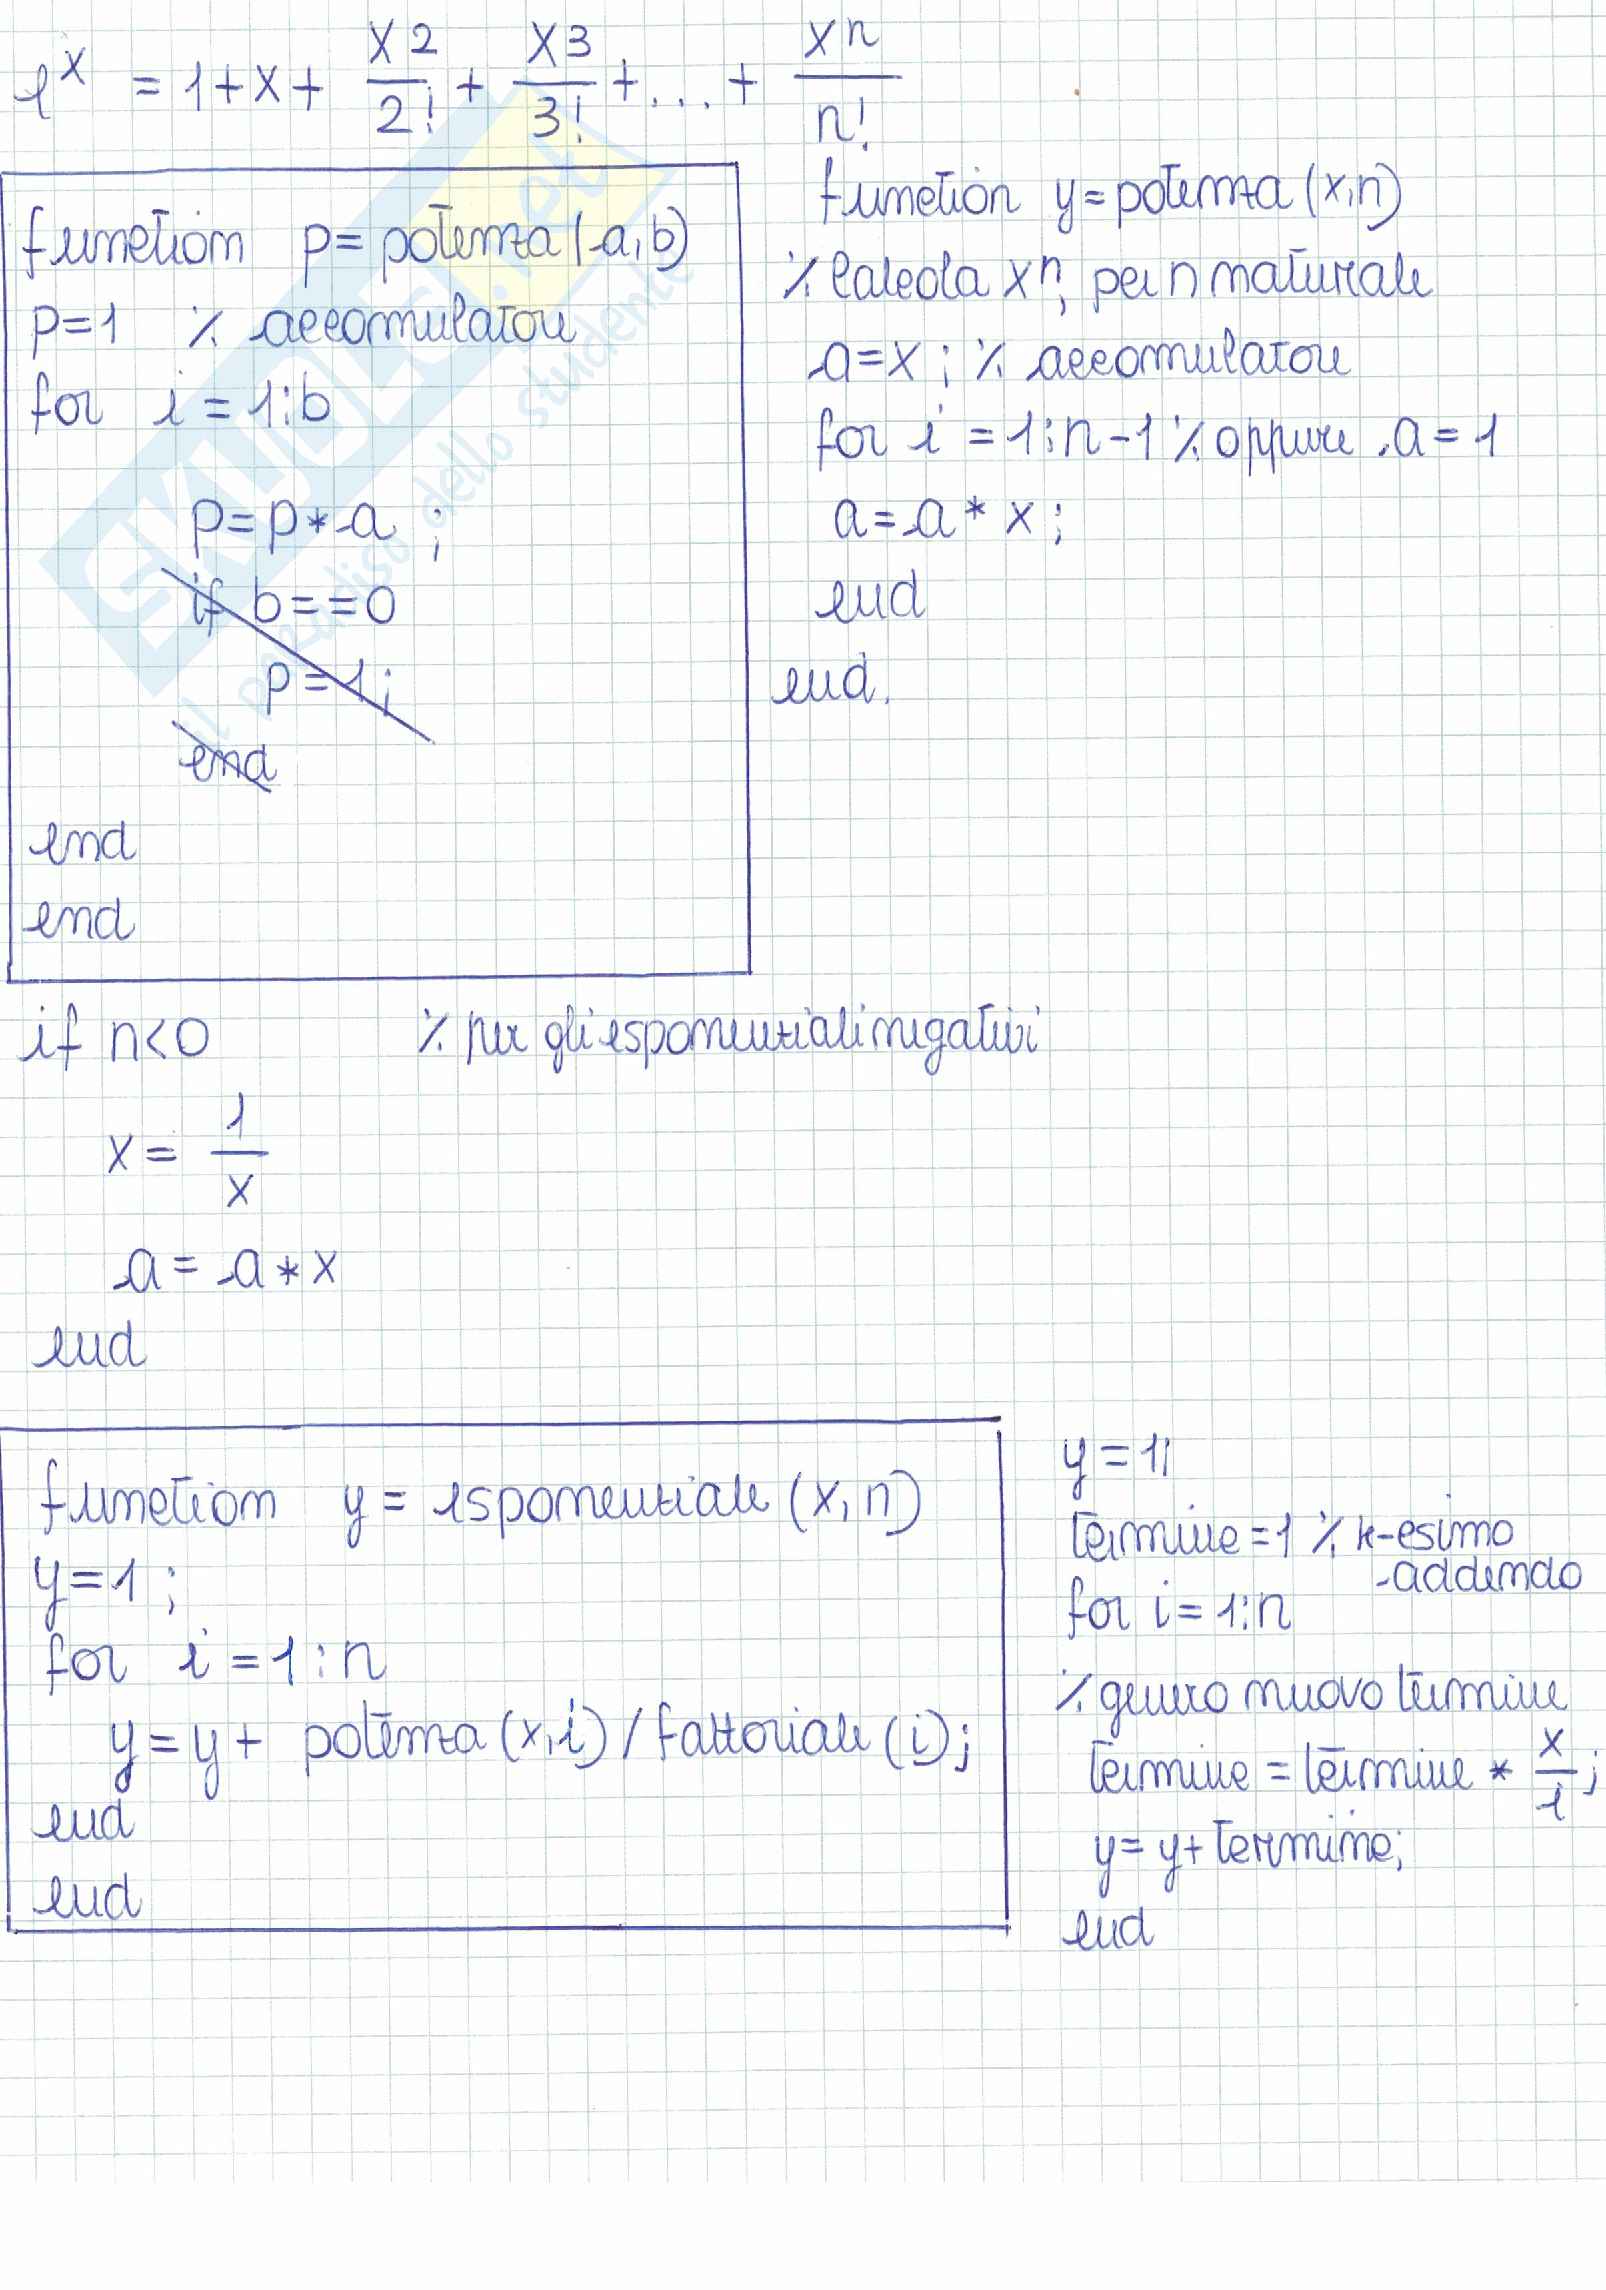 e^x = 1+x+ x2/2! + x3/3! +...+ xn/n!
function p=potenza(a,b)
p=1 % accomulatore
for i = 1:b
p=p*a ;
if b==0
p=1;
end
end
end
function y=potenza(x,n)
% Calcola x^n, per n naturale
a=x ; % accomulatore
for i = 1:n-1 % oppure a=1
a=a*x ;
end
end.
if n<0 % per gli esponenziali negativi
x = 1/x
a = a*x
end
function y = esponenziale (x,n)
y=1 ;
for i =1:n
y=y+ potenza(x,i)/fattoriale(i);
end
end
y=1;
termine=1 % k-esimo
addendo
for i=1:n
% genero nuovo termine
termine=termine * x/i ;
y=y+termine;
end
SKUOLA.net
il paradiso dello studente